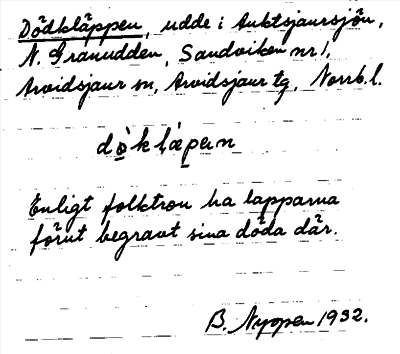 Dödkläppen, udde i Auktsjaursjön,
N. Granudden, Sandviken nr 1,
Arvidsjaur sn, Arvidsjaur tg, Norrb. l.
dòklàpen
Enligt folktron ha lapparna
förut begravt sina döda där.
B. Nyopen 1932.